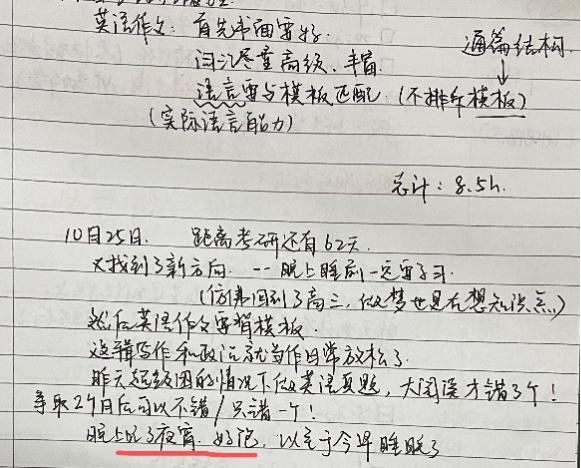 英语作文：首先书面要好.
词汇尽量高级、丰富
通篇结构
语言要与模板匹配 (不排斥模板)
(实际语言能力)
总计：8.5h.
10月25日. 距离考研还有62天.
又找到了新方向. -- 晚上睡前一定要学习.
(仿佛回到了高三，做梦也是在想知识点)
然后英语作文要背模板.
逻辑写作和政治就当作日常放松了.
昨天超级困的情况下做英语真题，大阅读才错3个！
争取2个月后可以不错/只错一个！
晚上吃了夜宵. 好饱，以至于今早睡眠了